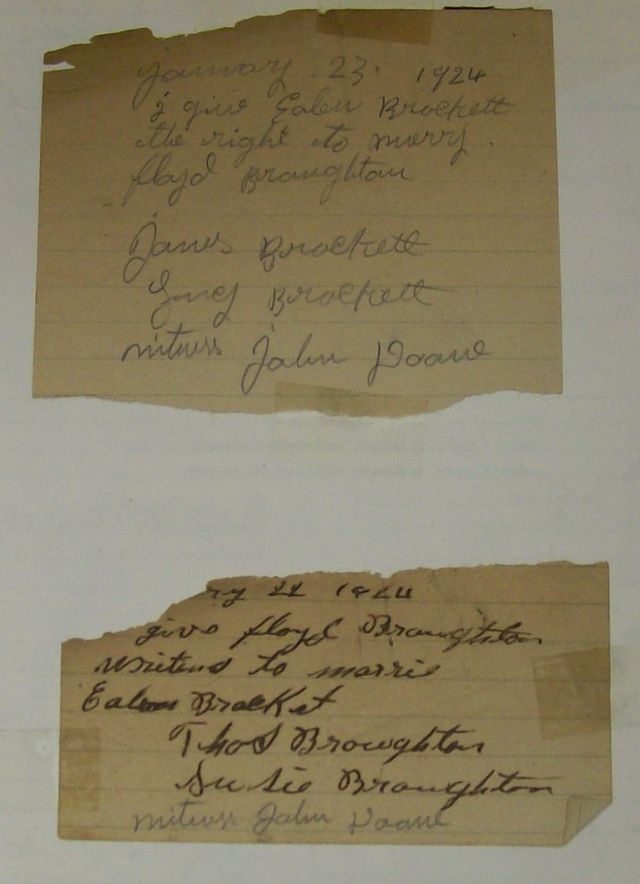 January 23. 1924
i give Ealen Brockett
the right to marry.
floyd Braughton
James Brockett
Lucy Brockett
mitness John Doane
ry 22 1924
give floyd Braughton
writens to marrie
Ealen Brockst
Thos Broughton
Susie Braughton
mitness John Doane